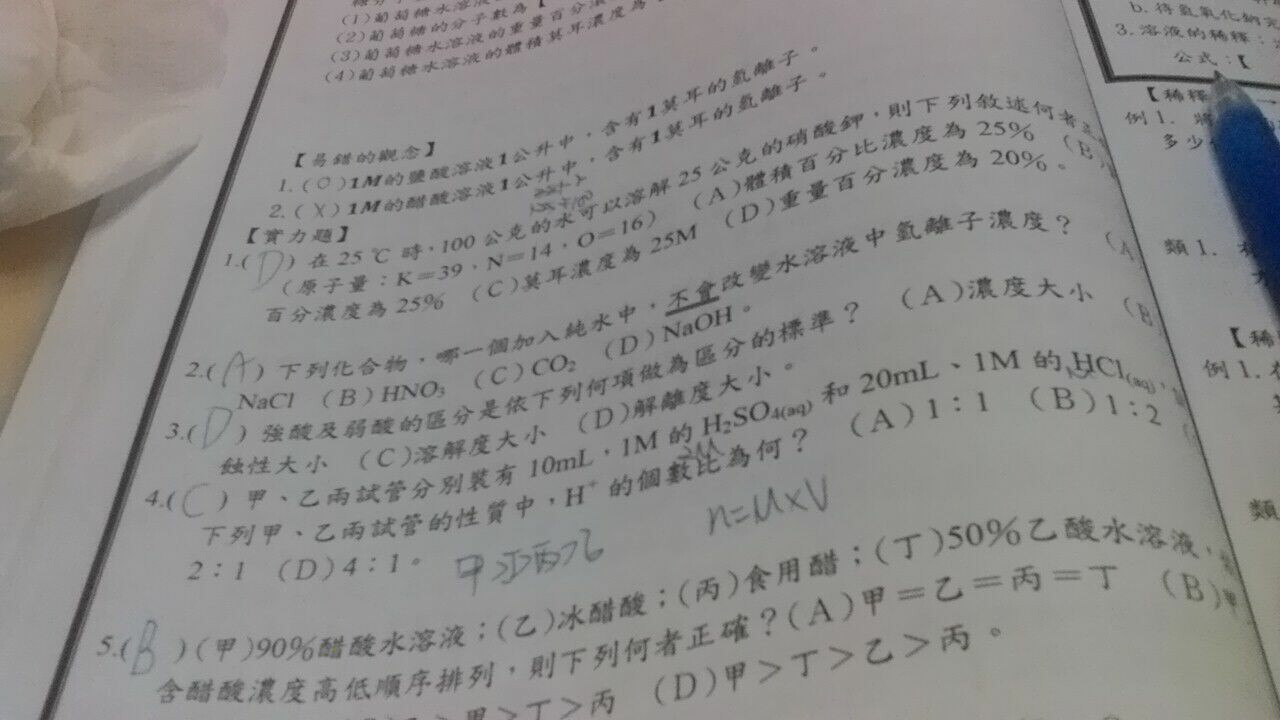 (1)葡萄糖水溶液
(2)葡萄糖的分子數為【
(3)葡萄糖水溶液的重量百分濃
(4)葡萄糖水溶液的體積莫耳濃度為
【易錯的觀念】
1.(○)1M的鹽酸溶液1公升中，含有1莫耳的氫離子。
2.(X)1M的醋酸溶液1公升中，含有1莫耳的氫離子。
【實力題】
1.(D)在25℃時，100公克的水可以溶解25公克的硝酸鉀，則下列敘述何者正
（原子量：K＝39，N＝14，O＝16） (A)體積百分比濃度為25% (B)
百分濃度為25% (C)莫耳濃度為25M (D)重量百分濃度為20%。
2.(A)下列化合物，哪一個加入純水中，不會改變水溶液中氫離子濃度？ (A
NaCl (B)HNO3 (C)CO2 (D)NaOH。
3.(D)強酸及弱酸的區分是依下列何項做為區分的標準？ (A)濃度大小 (B
蝕性大小 (C)溶解度大小 (D)解離度大小。
4.(C)甲、乙兩試管分別裝有10mL，1M的H2SO4(aq)和20mL、1M的HCl(aq)，
下列甲、乙兩試管的性質中，H⁺的個數比為何？ (A)1：1 (B)1：2
2：1 (D)4：1。
n=M×V
5.(B)(甲)90%醋酸水溶液；(乙)冰醋酸；(丙)食用醋；(丁)50%乙酸水溶液，
含醋酸濃度高低順序排列，則下列何者正確？(A)甲＝乙＝丙＝丁 (B)甲
＞甲＞丁＞丙 (D)甲＞丁＞乙＞丙。
b.待氫氧化鈉完
3.溶液的稀釋：
公式：【
【稀釋
例1. 將
多少
類1.
【稀
例1.
類